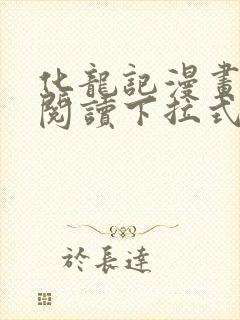 化龍記漫畫
閱讀下拉式
於長達